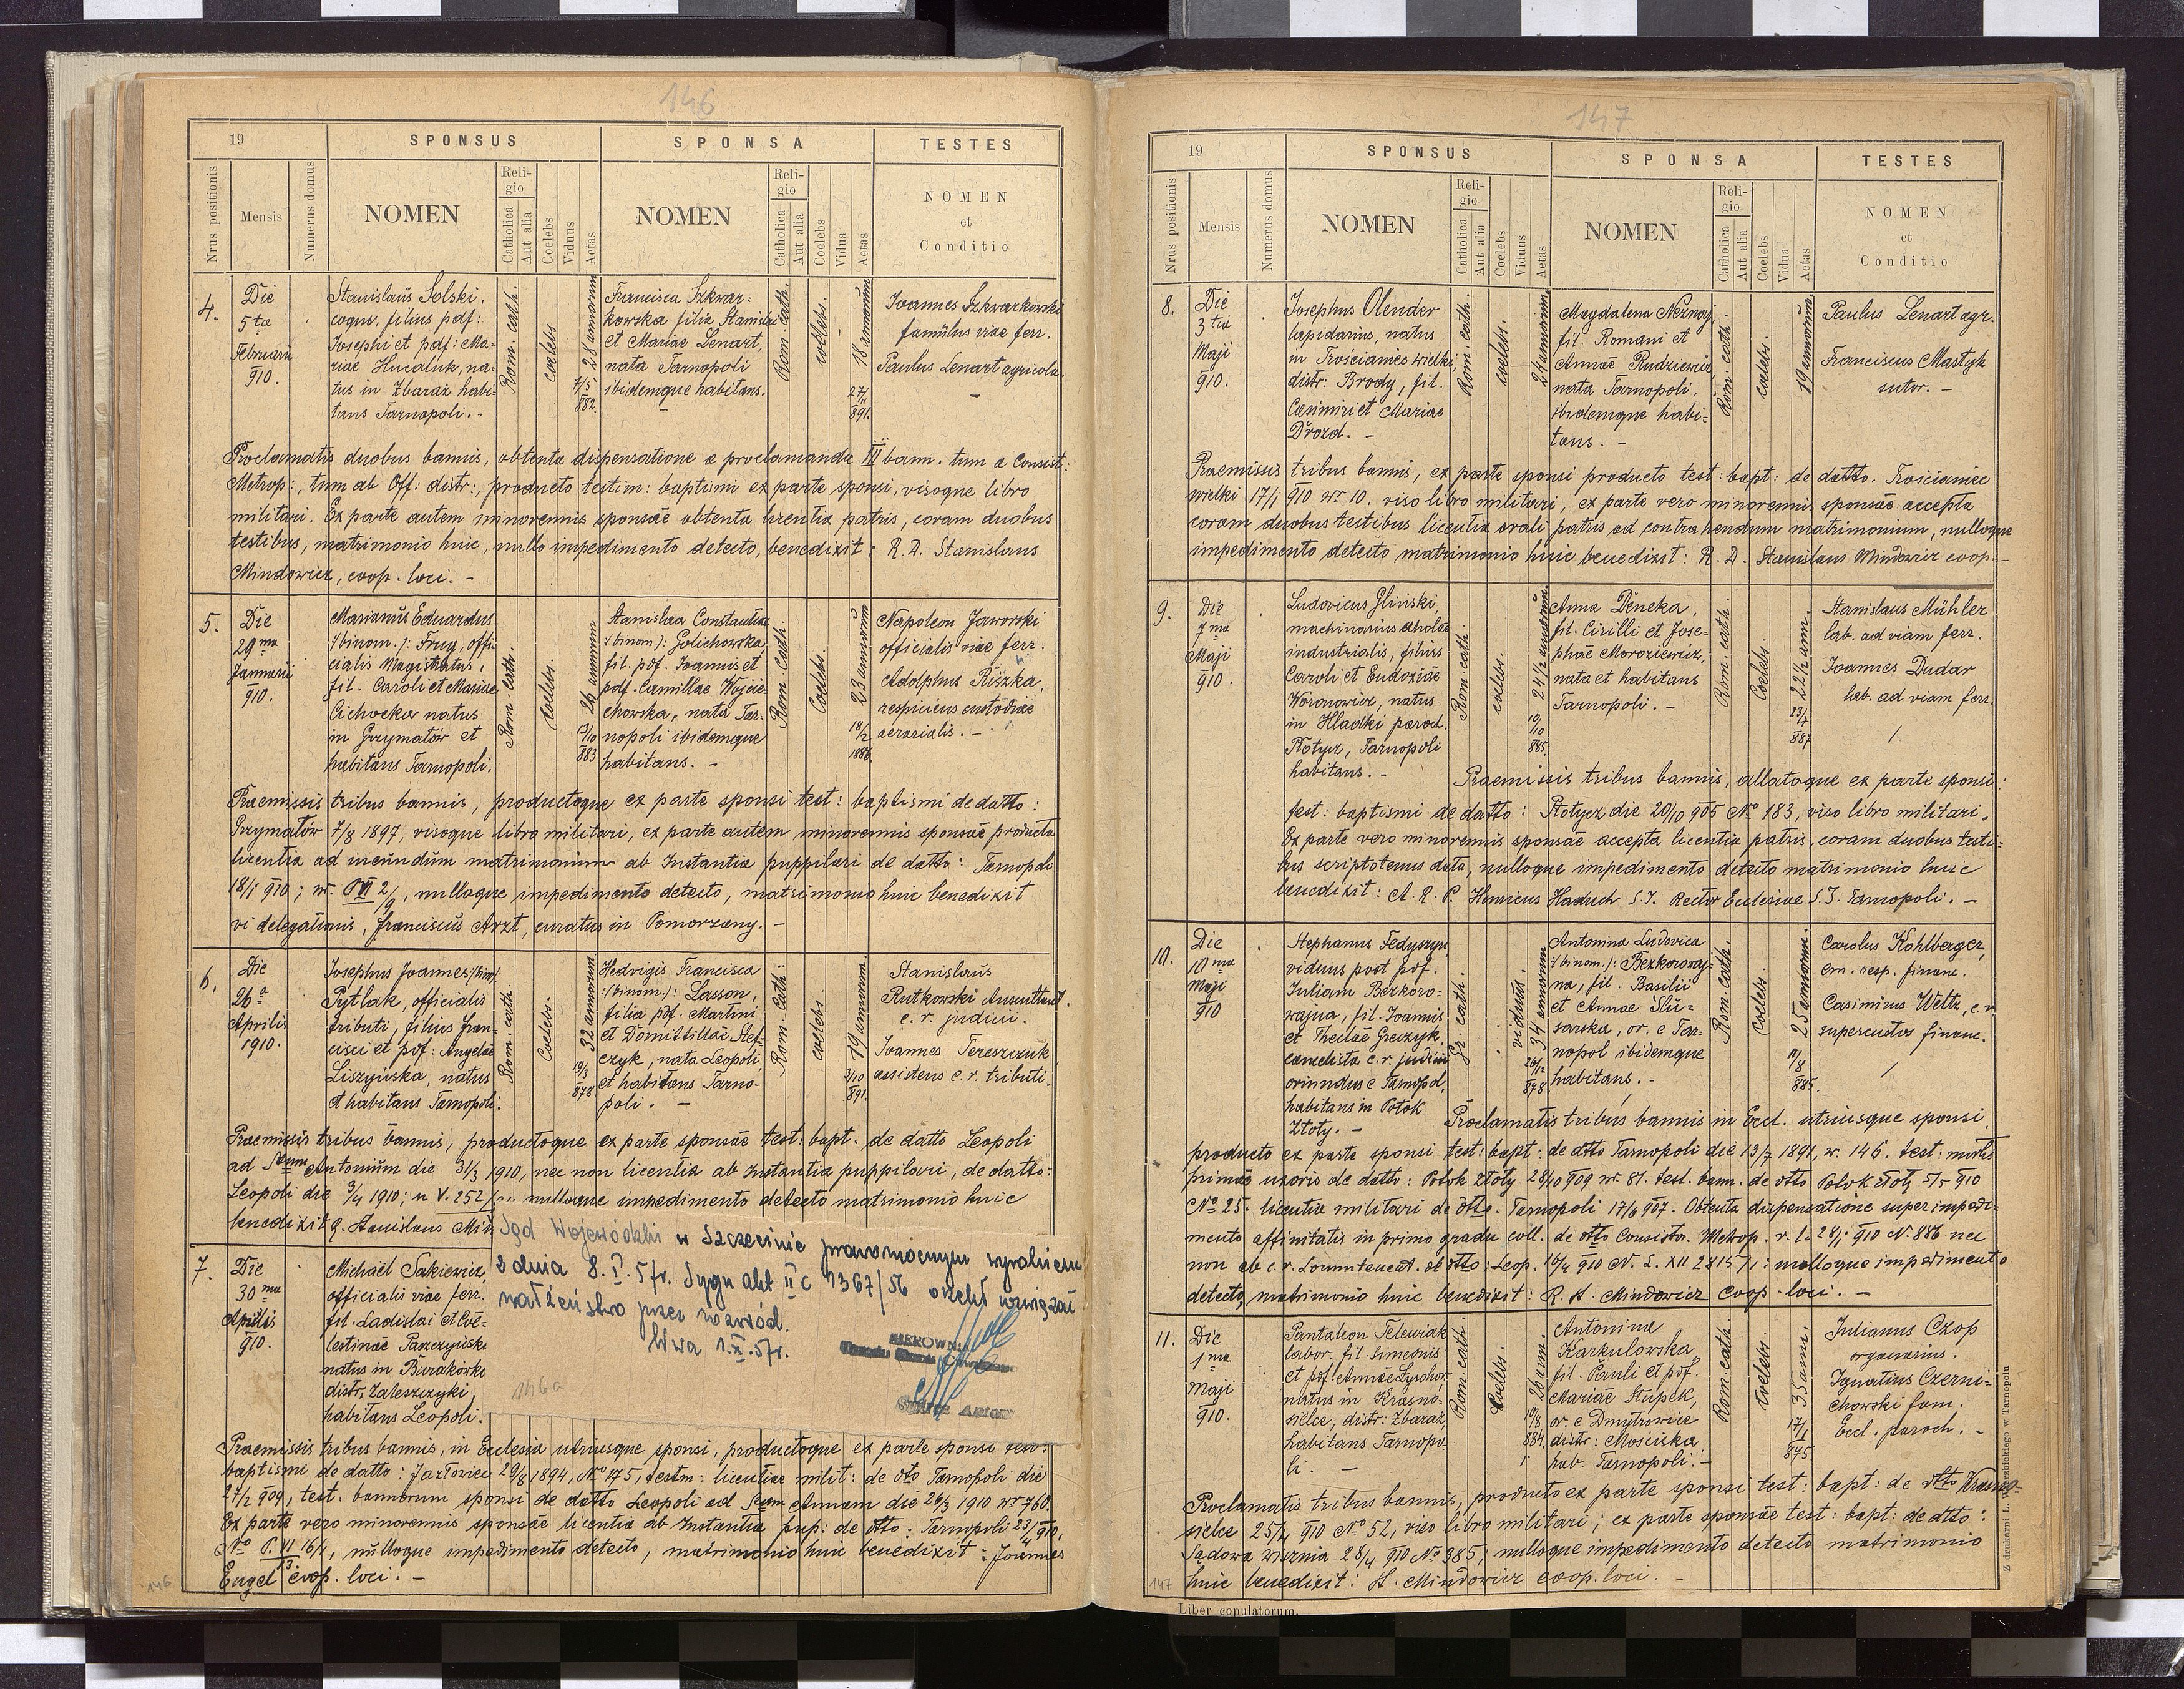 146
19
SPONSUS
SPONSA
TESTES
Nrus positionis
Mensis
Numerus domus
NOMEN
Reli-
gio
Catholica
Aut alia
Coelebs
Viduus
Aetas
NOMEN
Reli-
gio
Catholica
Aut alia
Coelebs
Vidua
Aetas
NOMEN
et
Conditio
4.
Die
5ta
Februarii
910.
Stanislaus Solski,
coquus, filius pdf:
Josephi et pdf: Ma-
riae Hucaluk, na-
tus in Zbaraż habi-
tans Tarnopoli. -
Rom. cath.
coelebs
28 annorum
7/5
882.
Francisca Szkwar-
kowska filia Stanislai
et Mariae Lenart,
nata Tarnopoli
ibidemque habitans.
Rom. cath.
coelebs.
18 annorum
27/11
891.
Joannes Szkwarkowski
famulus viae ferr.
Paulus Lenart agricola.
Proclamatis duobus bannis, obtenta dispensatione a proclamando III bann. tum a Consist:
Metrop:, tum ab Off: distr:, producto testim: baptismi ex parte sponsi, visoque libro
militari. Ex parte autem minorennis sponsae obtenta licentia patris, coram duobus
testibus, matrimonio huic, nullo impedimento detecto, benedixit: R. D. Stanislaus
Mindowicz, coop. loci. -
5.
Die
29ma
Januarii
910.
Marianus Eduardus
/:binom.:/ Frug, offi-
cialis Magistratus,
fil. Caroli et Mariae
Cichocka natus
in Grzymałów et
habitans Tarnopoli.
Rom. cath.
Coelebs.
26 annorum
13/10
883
Stanislaa Constantia
/:binom.:/ Golichowska,
fil. pdf. Joannis et
pdf. Camillae Wojcie-
chowska, nata Tar-
nopoli ibidemque
habitans. -
Rom. cath.
Coelebs.
23 annorum
18/2
1886.
Napoleon Jaworski
officialis viae ferr.
Adolphus Riszka,
respiciens custodiae
aerarialis. -
Praemissis tribus bannis, productoque ex parte sponsi test: baptismi de datto:
Grzymałów 7/8 1897, visoque libro militari, ex parte autem minorennis sponsae producta
licentia ad ineundum matrimonium ab Instantia puppilari de datto: Tarnopoli
18/1 910; nr. P VI 2/9, nulloque impedimento detecto, matrimonio huic benedixit
vi delegationis, Franciscus Arzt, curatus in Pomorzany. -
6.
Die
26a
Aprilis
1910.
Josephus Joannes /:bino:/
Pytlak, officialis
tributi, filius Fran-
cisci et pdf: Angelae
Liszyńska, natus
et habitans Tarnopoli.
Rom. cath.
Coelebs.
32 annorum
19/3
878.
Hedvigis Francisca
/:binom.:/ Lasson,
filia pdf. Martini
et Domitillae Stef-
czyk, nata Leopoli
et habitans Tarno-
poli. -
Rom. cath.
coelebs.
19 annorum.
3/10
891.
Stanislaus
Rutkowski Auscultant.
c. r. judicii.
Joannes Tereszczuk
assistens c. r. tributi.
Praemissis tribus bannis, productoque ex parte sponsae test: bapt. de datto Leopoli
ad Stum Antonium die 31/3 1910, nec non licentia ab Instantia puppilari, de datto:
Leopoli die 9/4 1910; n V. 252/ nulloque impedimento detecto matrimonio huic
benedixit R. Stanislaus Mi
Sąd Wojewódzki w Szczecinie prawomocnym wyrokiem
z dnia 8.I.57r. Sygn akt II C 1367/56 orzekł rozwiązać
małżeństwo przez rozwód.
Wwa 1.X.57r.
KIEROWNIK
146a
7.
Die
30ma
Aprilis
910.
Michaël Sakiewicz,
officialis viae ferr.
fil. Ladislai et Coe-
lestinae Paszczyńska
natus in Burakówka
distr: Zaleszczyki,
habitans Leopoli.
Praemissis tribus bannis, in Ecclesia utriusque sponsi, productoque ex parte sponsi test:
baptismi de datto: Jazłowiec 29/8 1894, No 175, testm: licentiae milit: de dto Tarnopoli die
27/2 909, test. bannorum sponsi de datto Leopoli ad Stam Annam die 26/3 1910 nr 760.
Ex parte vero minorennis sponsae licentia ab Instantia pup: de dtto: Tarnopoli 23/4 910,
No P. VI 16/1/13, nulloque impedimento detecto, matrimonio huic benedixit: Joannes
Engel coop. loci. -
146
147
19
SPONSUS
SPONSA
TESTES
Nrus positionis
Mensis
Numerus domus
NOMEN
Reli-
gio
Catholica
Aut alia
Coelebs
Viduus
Aetas
NOMEN
Reli-
gio
Catholica
Aut alia
Coelebs
Vidua
Aetas
NOMEN
et
Conditio
8.
Die
3tia
Maji
910.
Josephus Olender
lapidarius, natus
in Trościaniec wielki
distr: Brody, fil.
Casimiri et Mariae
Drozd. -
Rom. cath.
coelebs.
24 annorum.
Magdalena Neznaj,
fil. Romani et
Annae Rudziewicz,
nata Tarnopoli,
ibidemque habi-
tans. -
Rom. cath.
coelebs.
19 annorum.
Paulus Lenart agr.
Franciscus Mastyk
sutor. -
Praemissis tribus bannis, ex parte sponsi producto test: bapt: de datto. Trościaniec
wielki 17/1 910 nr 10. viso libro militari, ex parte vero minorennis sponsae accepta
coram duobus testibus licentia orali patris ad contrahendum matrimonium, nulloque
impedimento detecto matrimonio huic benedixit: R. D. Stanislaus Mindowicz coop. -
9.
Die
7ma
Maji
910.
Ludovicus Gliński,
machinarius scholae
industrialis, filius
Caroli et Eudoxiae
Woronowicz, natus
in Hladki paroch.
Płotycz, Tarnopoli
habitans. -
Rom. cath.
coelebs.
24 1/2 annorum
19/10
885.
Anna Deneka,
fil. Cirilli et Jose-
phae Moroziewicz,
nata et habitans
Tarnopoli. -
Rom. cath.
Coelebs.
22 1/2 ann.
23/7
887
Stanislaus Mühler
lab. ad viam ferr.
Joannes Dudar
lab. ad viam ferr.
Praemissis tribus bannis, allatoque ex parte sponsi:
test: baptismi de datto: Płotycz die 20/10 905 No 183, viso libro militari.
Ex parte vero minorennis sponsae accepta licentia patris, coram duobus testi-
bus scriptotenus data, nulloque impedimento detecto matrimonio huic
benedixit: A. R. P. Henricus Haduch S. J. Rector Ecclesiae S. J. Tarnopoli. -
10.
Die
10ma
Maji
910
Stephanus Fedyszyn,
viduus post pdf.
Juliam Bezkoro-
wajna, fil. Joannis
et Theclae Greczyk
cancelista c. r. judicii
oriundus e Tarnopol,
habitans in Potok
Złoty. -
Gr. cath.
viduus.
34 annorum
26/12
878
Antonina Ludovica
/:binom.:/ Bezkorowaj-
na, fil. Basilii
et Annae Slu-
sarska, or. e Tar-
nopol ibidemque
habitans. -
Rom. cath.
Coelebs.
25 annorum.
19/8
885.
Carolus Kohlberger,
em. resp. financ.
Casimirus Weltz, c. r.
supercustos financ.
Proclamatis tribus bannis in Eccl. utriusque sponsi,
producto ex parte sponsi test: bapt: de dtto Tarnopoli die 13/7 1891, nr. 146. test: mortis
primae uxoris de datto: Potok złoty 28/10 909 nr. 81. test. bann. de dtto Potok złoty 5/5 910
No 25. licentia militari de dtto. Tarnopoli 17/6 907. Obtenta dispensatione super impedi-
mento affinitatis in primo gradu coll. de dtto Consistor. Metrop. r. l. 28/1 910 N. 886 nec
non ab c. r. Locumtenent. de dtto: Leop. 16/4 910 N. L. XII 2815/1: nulloque impedimento
detecto, matrimonio huic benedixit: R. St. Mindowicz coop. loci. -
11.
Die
1ma
Maji
910.
Pantaleon Telewiak
labor. fil. Simeonis
et pdf. Annae Łysohor,
natus in Krasno-
sielce, distr: Zbaraż
habitans Tarnopo-
li. -
Rom. cath.
Coelebs.
26 ann.
10/8
884.
Antonina
Karkulowska
fil. Pauli et pdf.
Mariae Stupek,
or. e Dmytrowice
distr: Mościska
hab. Tarnopoli. -
Rom. cath.
Coelebs.
35 ann.
17/1
875
Julianus Czop
organarius.
Ignatius Czerni-
chowski fam.
Eccl. paroch. -
Proclamatis tribus bannis, producto ex parte sponsi test: bapt: de dtto Krasno-
sielce 25/4 910 No 52, viso libro militari; ex parte sponsae test: bapt: de dtto:
Sądowa Wisznia 28/4 910 No 385; nulloque impedimento detecto matrimonio
huic benedixit: St. Mindowicz coop. loci. -
147
Liber copulatorum.
Z drukarni L. Wierzbickiego w Tarnopolu